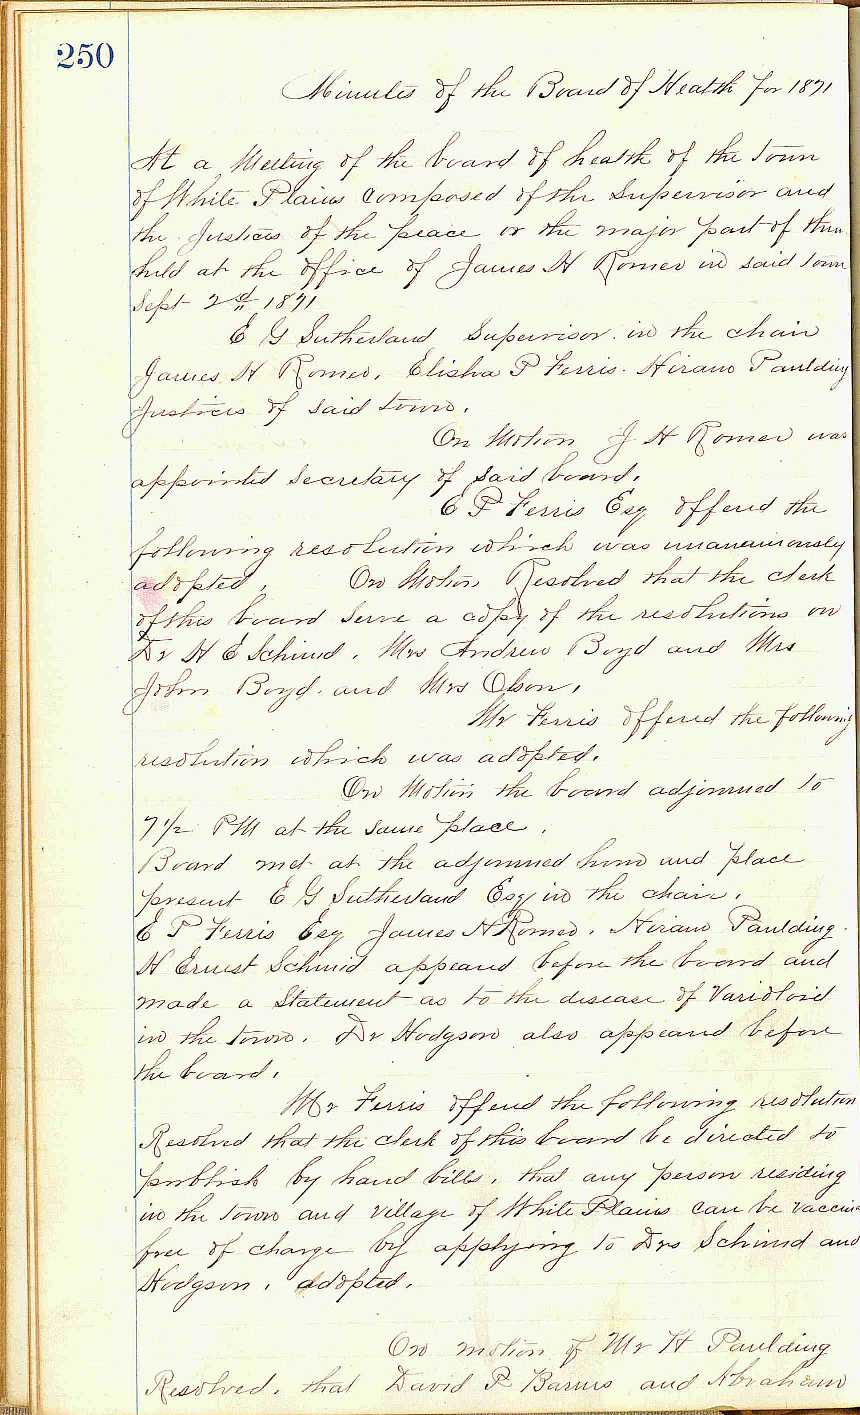 250
Minutes of the Board of Health for 1871
At a Meeting of the board of health of the Town
of White Plains composed of the Supervisor and
the Justices of the peace or the major part of them
held at the office of James H Romer in said town
Sept 2d 1871
E G Sutherland Supervisor in the chair
James H Romer, Elisha P Ferris. Hiram Paulding
Justices of said town.
On Motion J H Romer was
appointed secretary of said board.
E P Ferris Esq offered the
following resolution which was unanimously
adopted. On Motion Resolved that the clerk
of this board serve a copy of the resolutions on
Dr H E Schmid. Mrs Andrew Boyd and Mrs
John Boyd. and Mrs Olson.
Mr Ferris offered the following
resolution which was adopted.
On Motion the board adjourned to
7 1/2 PM at the same place.
Board met at the adjourned hour and place
present E G Sutherland Esq in the chair.
E P Ferris Esq James H Romer. Hiram Paulding.
H Ernest Schmid appeared before the board and
made a Statement as to the disease of Varioloid
in the town. Dr Hodgson also appeared before
the board.
Mr Ferris offered the following resolution
Resolved that the clerk of this board be directed to
publish by hand bills. that any person residing
in the town and village of White Plains can be vaccina
free of charge by applying to Drs Schmid and
Hodgson. adopted.
On motion of Mr H Paulding
Resolved. that David P Barnes and Abraham